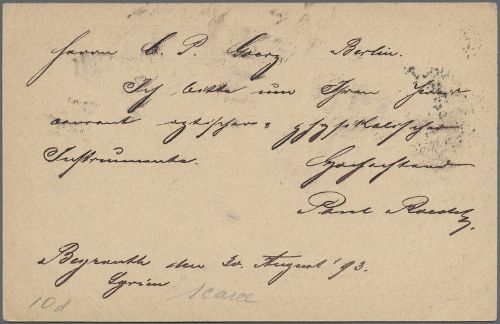 Herrn C. P. Goerz, Berlin.
Ich bitte um Ihren Preis
courant optischer & physikalischer
Instrumente.
Hochachtend
Paul
Beyrouth den 20. August '93.
Syrien
scarce
10d